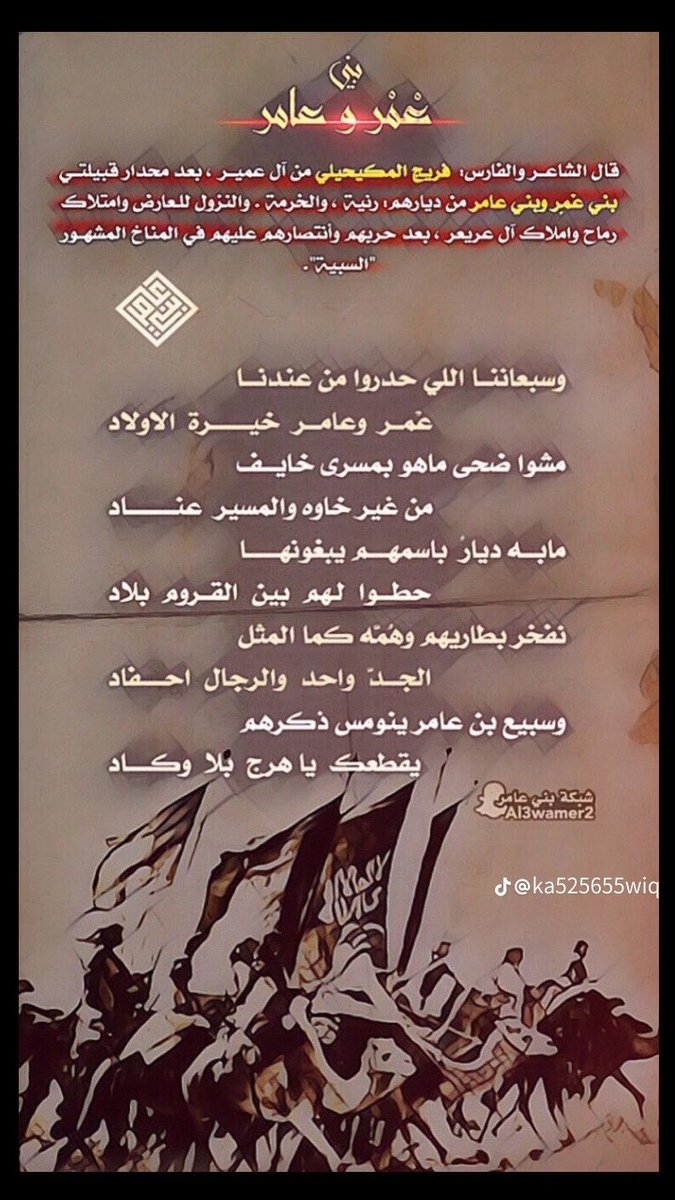 بني
عُمَر و عامر
قال الشاعر والفارس: فريج المكيحيلي من آل عمير ، بعد محدار قبيلتي
بني عُمر وبني عامر من ديارهم: رنية ، والخرمة . والنزول للعارض وامتلاك
رماح واملاك آل عريعر ، بعد حربهم وأنتصارهم عليهم في المناخ المشهور
"السبية".
وسبعاننا اللي حدروا من عندنا
عُمر وعامر خيرة الاولاد
مشوا ضحى ماهو بمسرى خايف
من غير خاوه والمسير عناد
مابه ديارُ باسمهم يبغونها
حطوا لهم بين القروم بلاد
نفخر بطاريهم وهُمّه كما المثل
الجدّ واحد والرجال احفاد
وسبيع بن عامر ينومس ذكرهم
يقطعك يا هرج بلا وكاد
شبكة بني عامر
Al3wamer2
@ka525655wiq